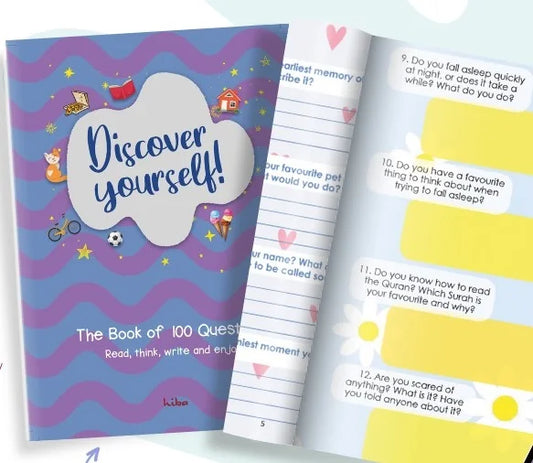 Discover
yourself!
The Book of 100 Quest
Read, think, write and enjo
hiba
earliest memory of
ribe it?
our favourite pet
t would you do?
ur name? What
to be called so
niest moment
5
9. Do you fall asleep quickly
at night, or does it take a
while? What do you do?
10. Do you have a favourite
thing to think about when
trying to fall asleep?
11. Do you know how to read
the Quran? Which Surah is
your favourite and why?
12. Are you scared of
anything? What is it? Have
you told anyone about it?